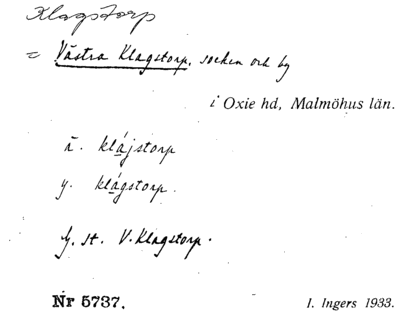 Klagstorp
= Västra Klagstorp, socken och by
i Oxie hd, Malmöhus län.
ä. klájstorp
y. klágstorp.
J. st. V. Klagstorp.
Nr 5737.
I. Ingers 1933.